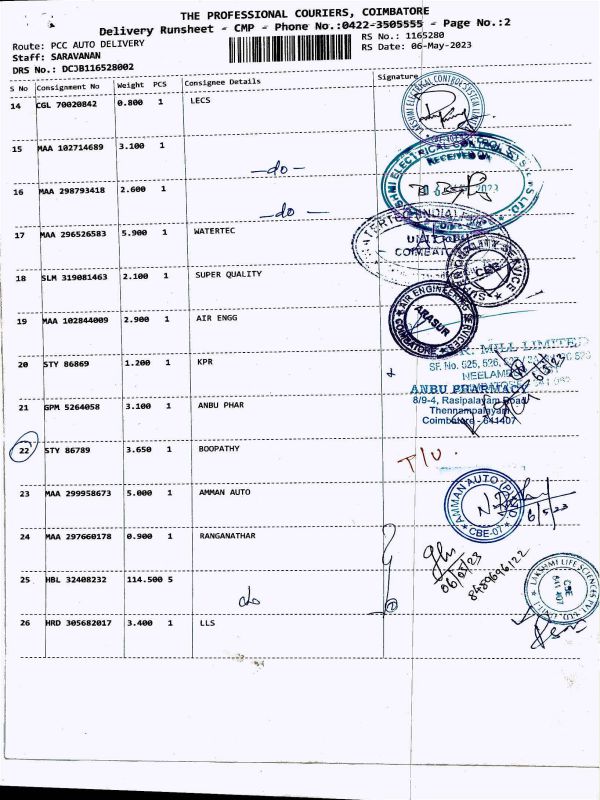 THE PROFESSIONAL COURIERS, COIMBATORE
Delivery Runsheet - CMP - Phone No.:0422-3505555 - Page No.:2
Route: PCC AUTO DELIVERY
RS No.: 1165280
Staff: SARAVANAN
RS Date: 06-May-2023
DRS No.: DCJB116528002
S No Consignment No Weight PCS Consignee Details Signature
14 CGL 70020842 0.800 1 LECS
15 MAA 102714689 3.100 1
-do-
16 MAA 298793418 2.600 1
-do-
17 MAA 296526583 5.900 1 WATERTEC
18 SLM 319081463 2.100 1 SUPER QUALITY
19 MAA 102844009 2.900 1 AIR ENGG
20 STY 86869 1.200 1 KPR
21 GPM 5264058 3.100 1 ANBU PHAR
22 STY 86789 3.650 1 BOOPATHY
23 MAA 299958673 5.000 1 AMMAN AUTO
24 MAA 297660178 0.900 1 RANGANATHAR
25 HBL 32408232 114.500 5
do
26 HRD 305682017 3.400 1 LLS
RECEIVED ON
2023
COIMBATORE
CBE
AIR ENGINEERING SERVICES
ARASUR
COIMBATORE
MILL LIMITED
SF. No. 525, 526,
6/5/23
ANBU PHARMACY
8/9-4, Rasipalayam Road
Thennampalayam
Coimbatore - 641407
T/U.
AMMAN AUTO (P)
CBE-07
6/5/23
06/05/23
8489696122
LAKSHMI LIFE SCIENCES PVT. LTD.
CBE
641 407